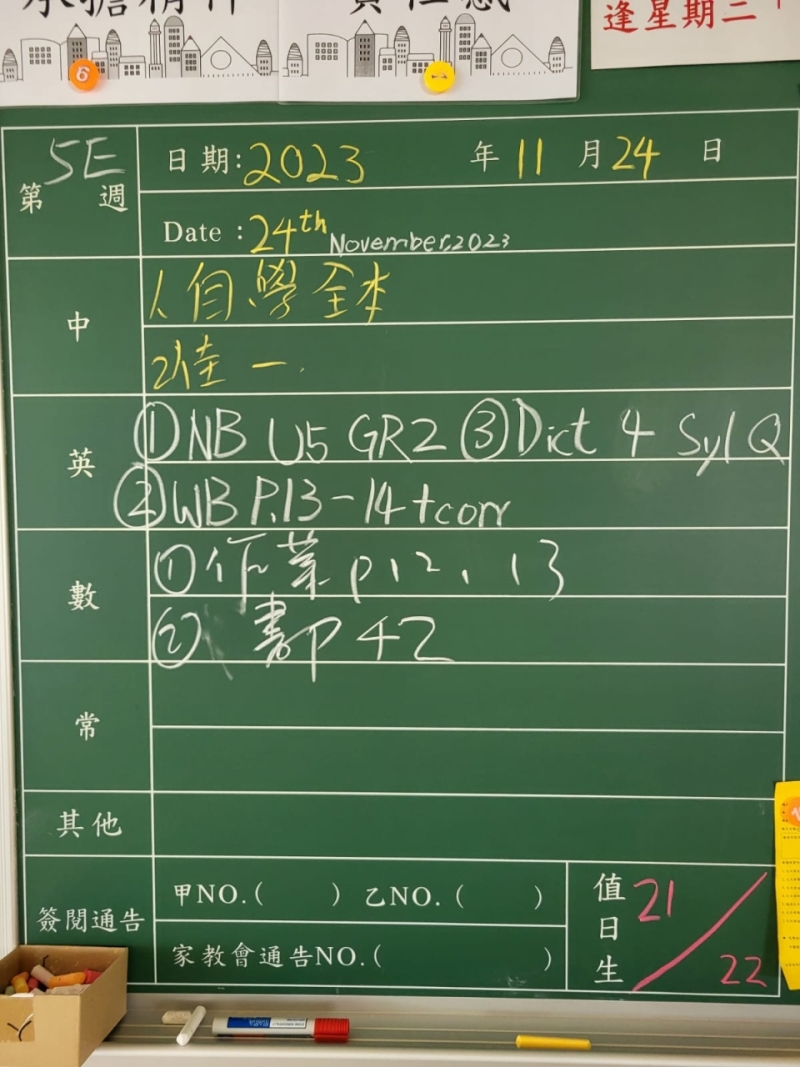 承擔精神
責任感
逢星期三
6
5E
第 週
日期:2023 年 11 月 24 日
Date : 24th November,2023
中
1.自學全本
2.佳一.
英
①NB U5 GR2 ③Dict 4 Syl Q
②WB P.13-14+corr
數
①作業p12、13
② 書P42
常
其他
簽閱通告
甲NO.( ) 乙NO.( )
家教會通告NO.( )
值日生
21/22